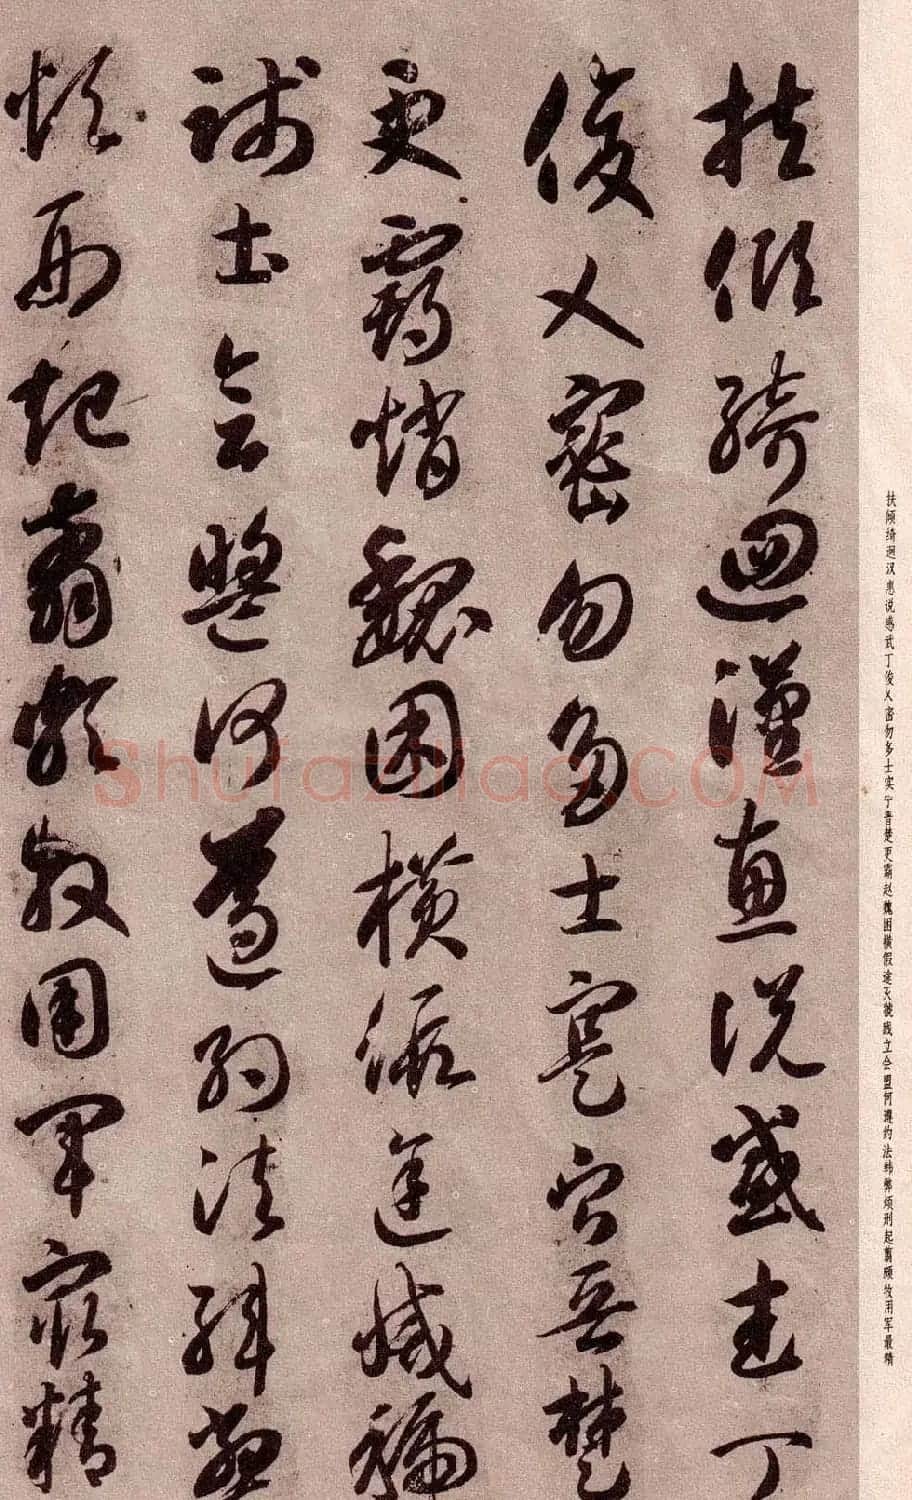 扶傾綺迴漢惠説感武丁
俊乂密勿多士寔寧晉楚
更霸趙魏困橫假途滅虢
踐土會盟何遵約法韓弊
煩刑起翦頗牧用軍最精
扶倾绮迴汉惠说感武丁俊乂密勿多士实宁晋楚更霸赵魏困横假途灭虢践立会盟何遵约法纬弊烦刑起翦颇牧用军最精
Shufaziliao.COM